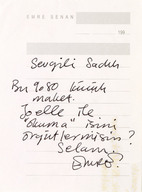 EMRE SENAN
199
Sevgili Sadık
Bu 9080 küçük
maket.
Joelle ile
"okuma" isini
örgütlermisin?
Selam.
Emre